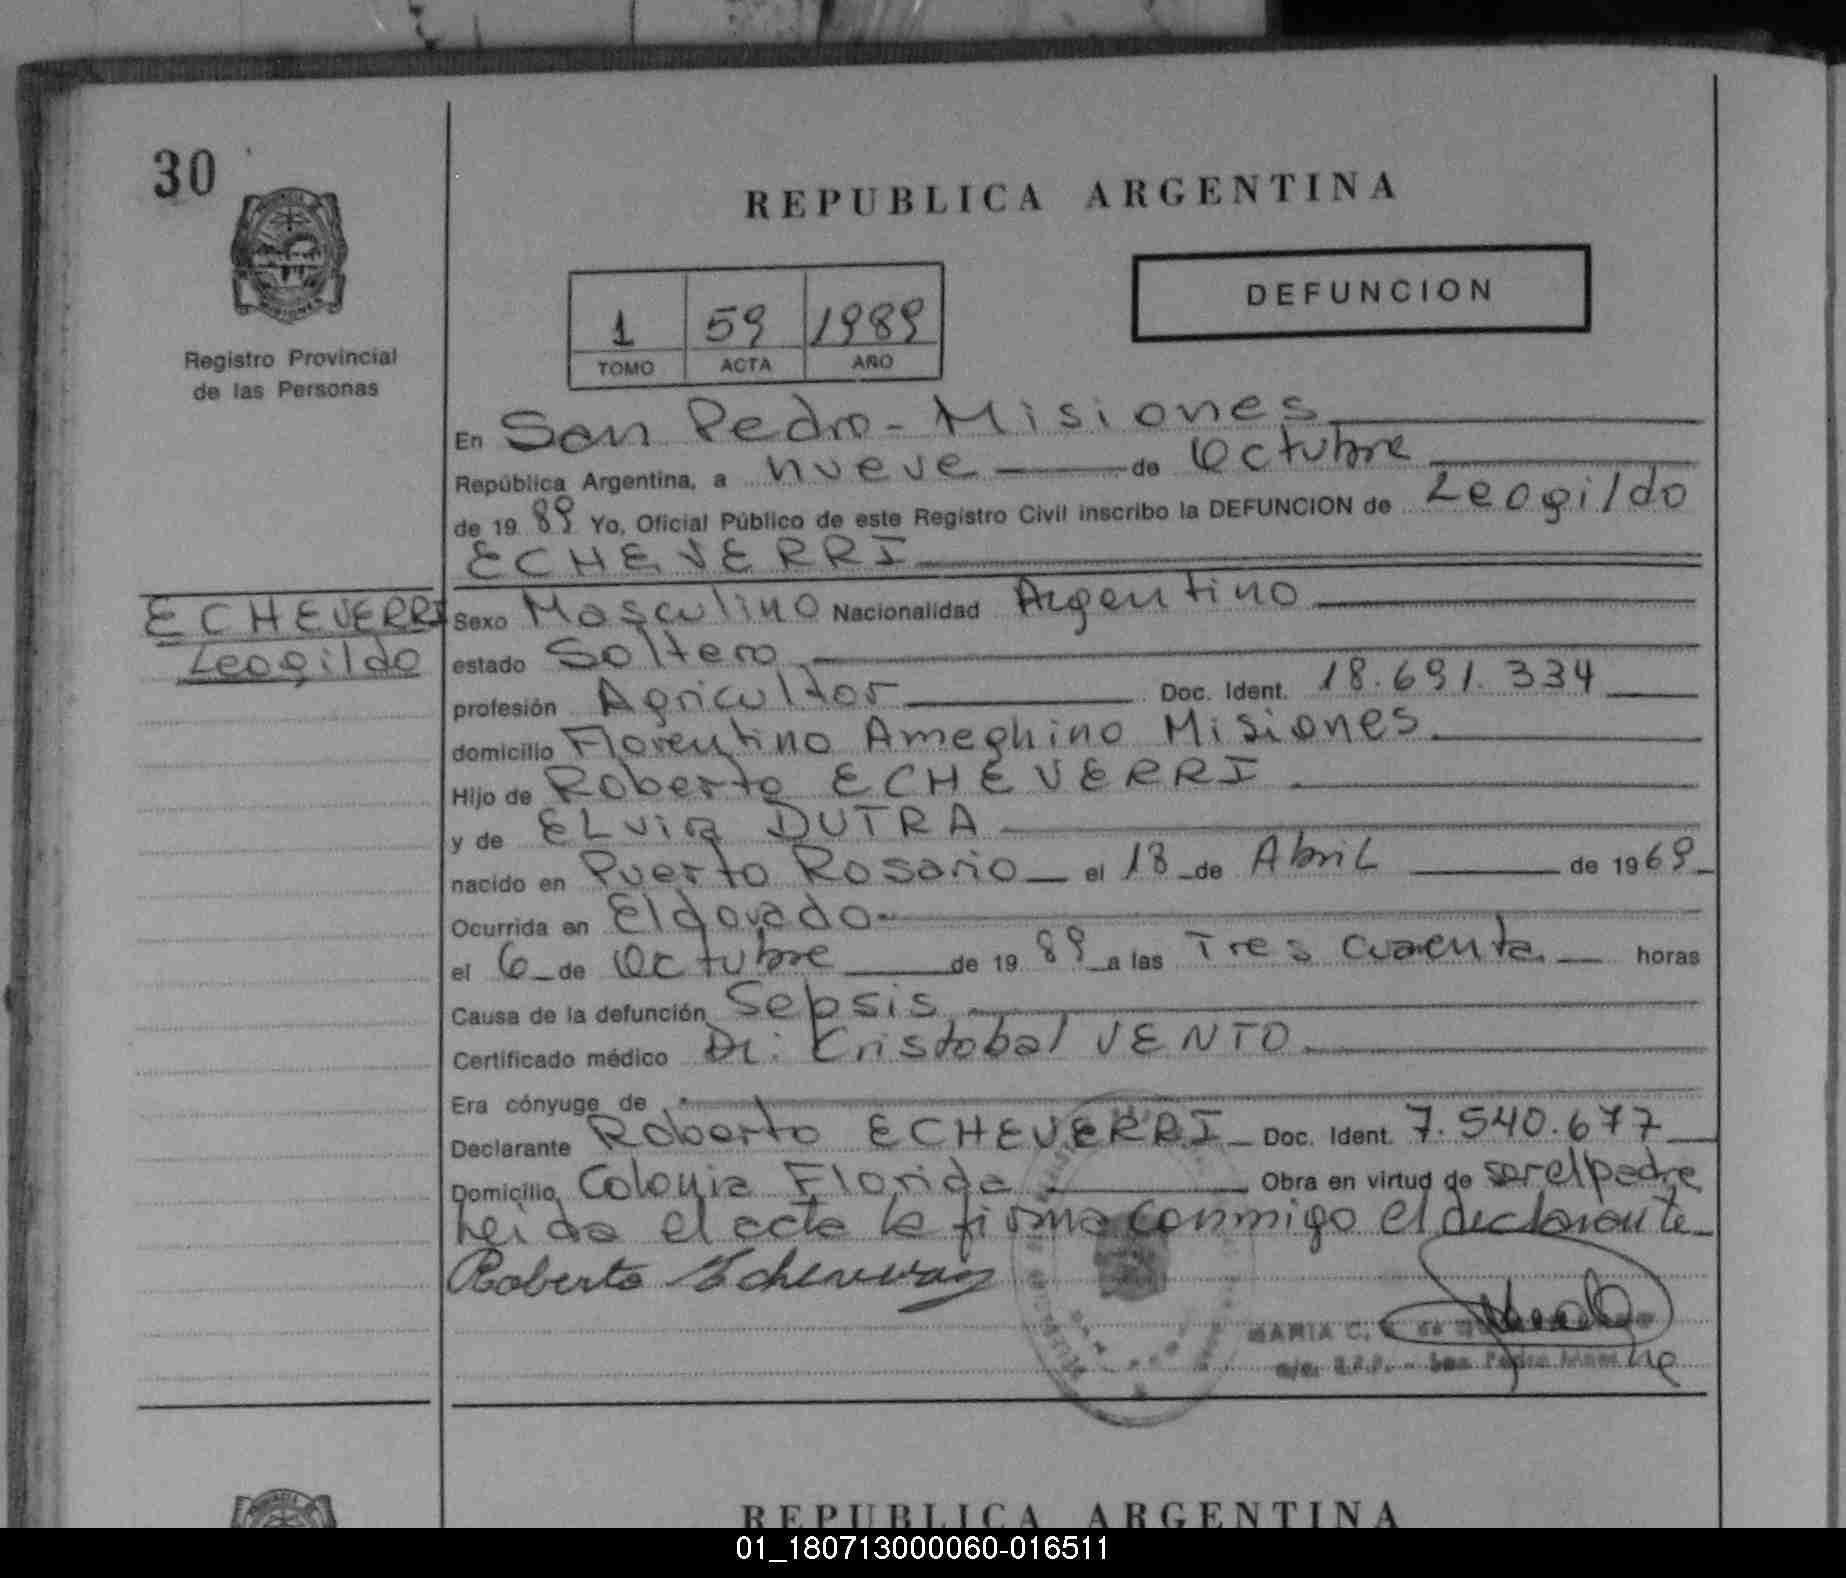 30
REPUBLICA ARGENTINA
DEFUNCION
1 59 1989
TOMO ACTA AÑO
Registro Provincial
de las Personas
En San Pedro - Misiones
República Argentina, a nueve de Octubre
de 19 89 Yo, Oficial Público de este Registro Civil inscribo la DEFUNCION de Leogildo
ECHEVERRI
ECHEVERRI
Leogildo
Sexo Masculino Nacionalidad Argentino
estado Soltero
profesión Agricultor Doc. Ident. 18.691.334
domicilio Florentino Ameghino Misiones
Hijo de Roberto ECHEVERRI
y de ELvira DUTRA
nacido en Puerto Rosario el 18 de Abril de 1969
Ocurrida en Eldorado
el 6 de Octubre de 19 89 a las Tres cuarenta horas
Causa de la defunción Sepsis
Certificado médico Dr. Cristobal VENTO
Era cónyuge de
Declarante Roberto ECHEVERRI Doc. Ident. 7.540.677
Domicilio Colonia Florida Obra en virtud de ser el padre
Leida el acta la firma conmigo el declarante
Roberto
MARIA C. de
San Pedro
REPUBLICA ARGENTINA
01_180713000060-016511